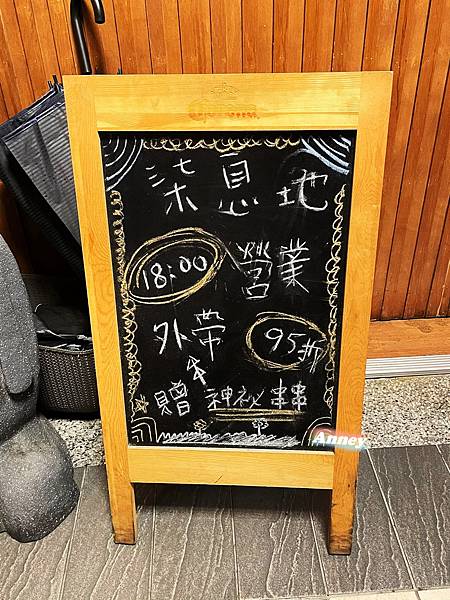 柒息地
18:00 營業
外帶 95折
贈 神祕串串
Anney